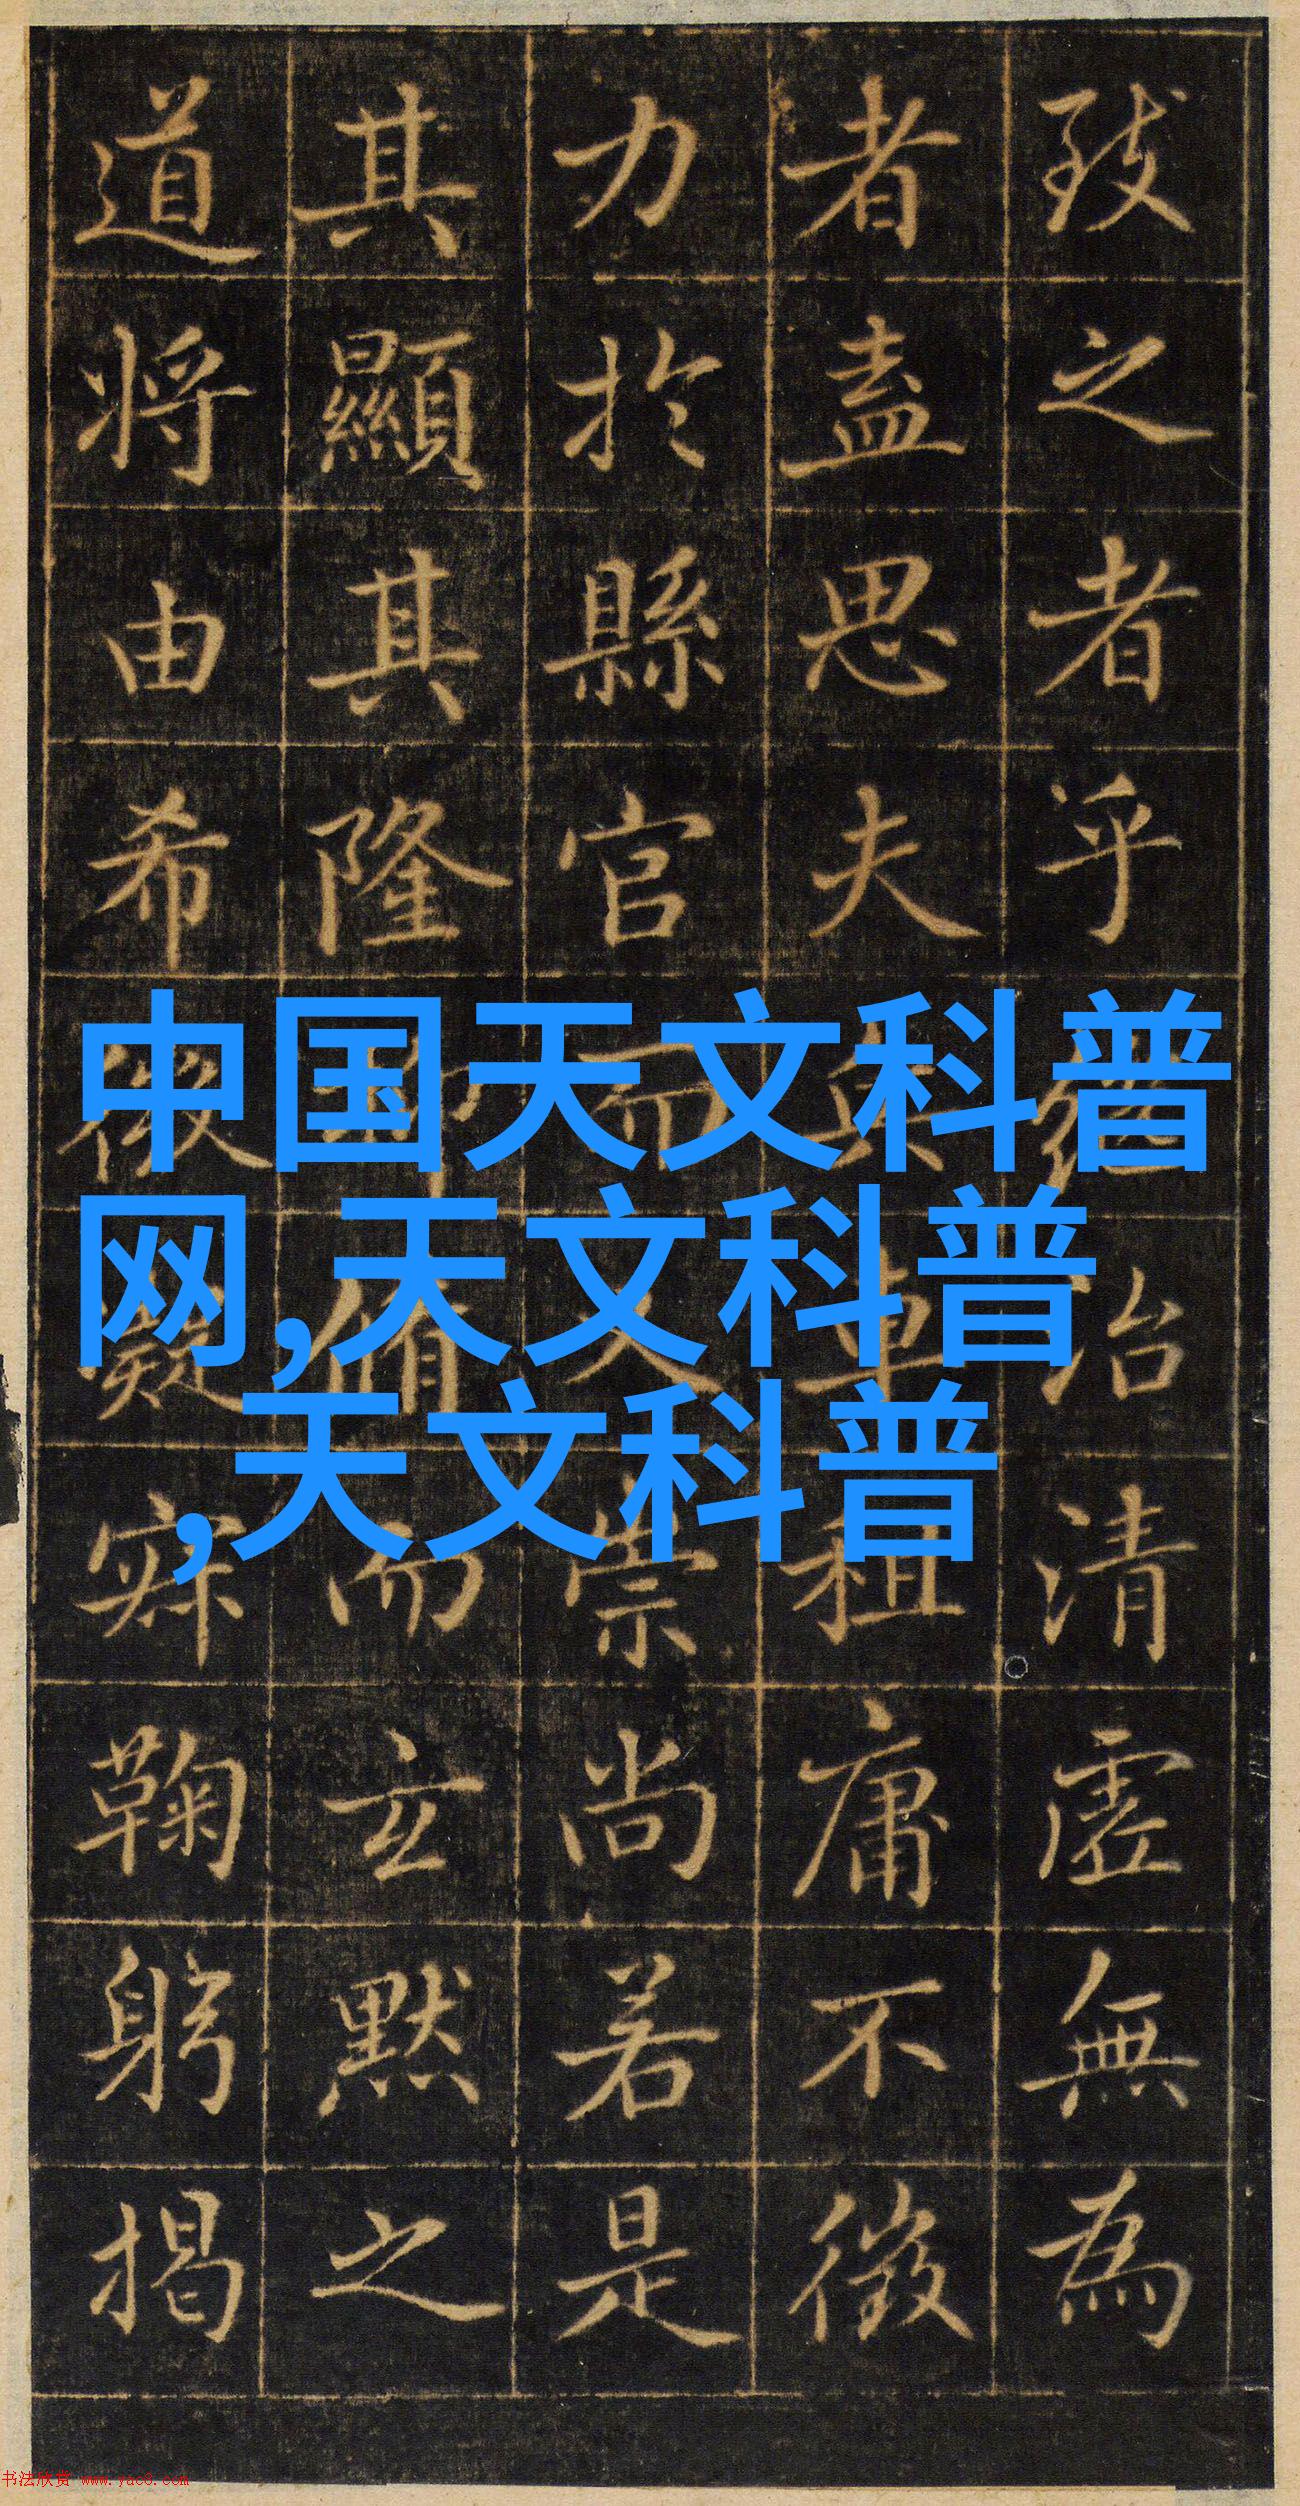 致之者乎
治清虛無為
者盡思夫
租庸不徵
力於縣官而
崇尚若是
其顯其隆
而玄默之
道將由希
寂鞠躬揭
中国天文科普
网,天文科普
,天文科普
书法欣赏 www.yac8.com